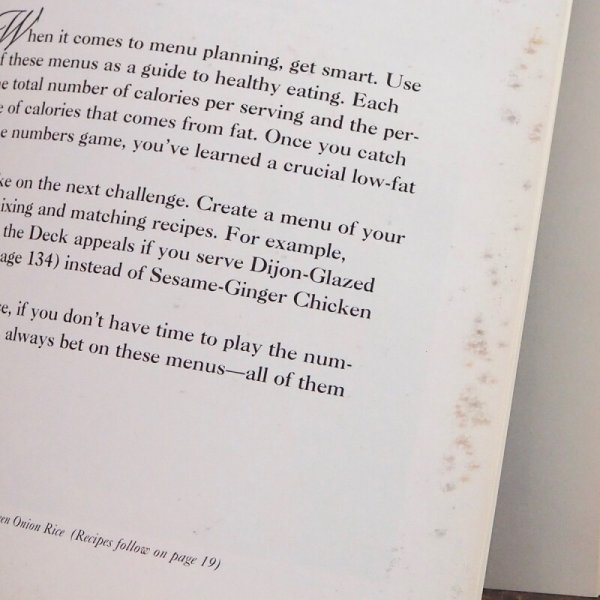 When it comes to menu planning, get smart. Use
f these menus as a guide to healthy eating. Each
e total number of calories per serving and the per-
e of calories that comes from fat. Once you catch
e numbers game, you've learned a crucial low-fat
ke on the next challenge. Create a menu of your
ixing and matching recipes. For example,
the Deck appeals if you serve Dijon-Glazed
age 134) instead of Sesame-Ginger Chicken
e, if you don't have time to play the num-
always bet on these menus—all of them
een Onion Rice (Recipes follow on page 19)